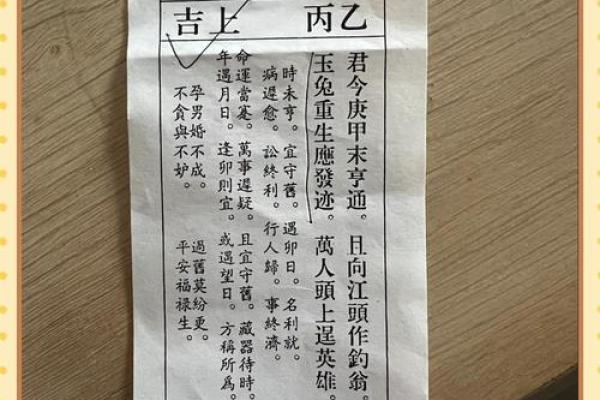 乙丙 上吉
君今庚甲末亨通。且向江頭作釣翁。
玉兔重生應發迹。萬人頭上逞英雄。
時未亨。宜守舊。遇卯日。名利就。
病遲愈。訟終利。行人歸。事終濟。
命運當蹇。萬事遲疑。且宜守舊。藏器待時。
年遇月日。逢卯則宜。或遇望日。方稱所爲。
孕男婚不成。過舊莫紛更。
不貪與不妒。平安福祿生。